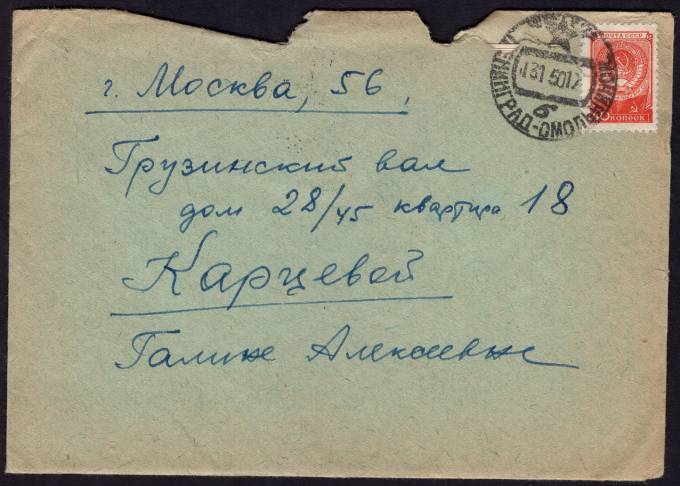 г. Москва, 56,
Грузинский вал
дом 28/45 квартира 18
Карцевой
Галине Алексеевне
ПОЧТА СССР
КОПЕЕК
ЛЕНИНГРАД-СМОЛЬНИНСК
б